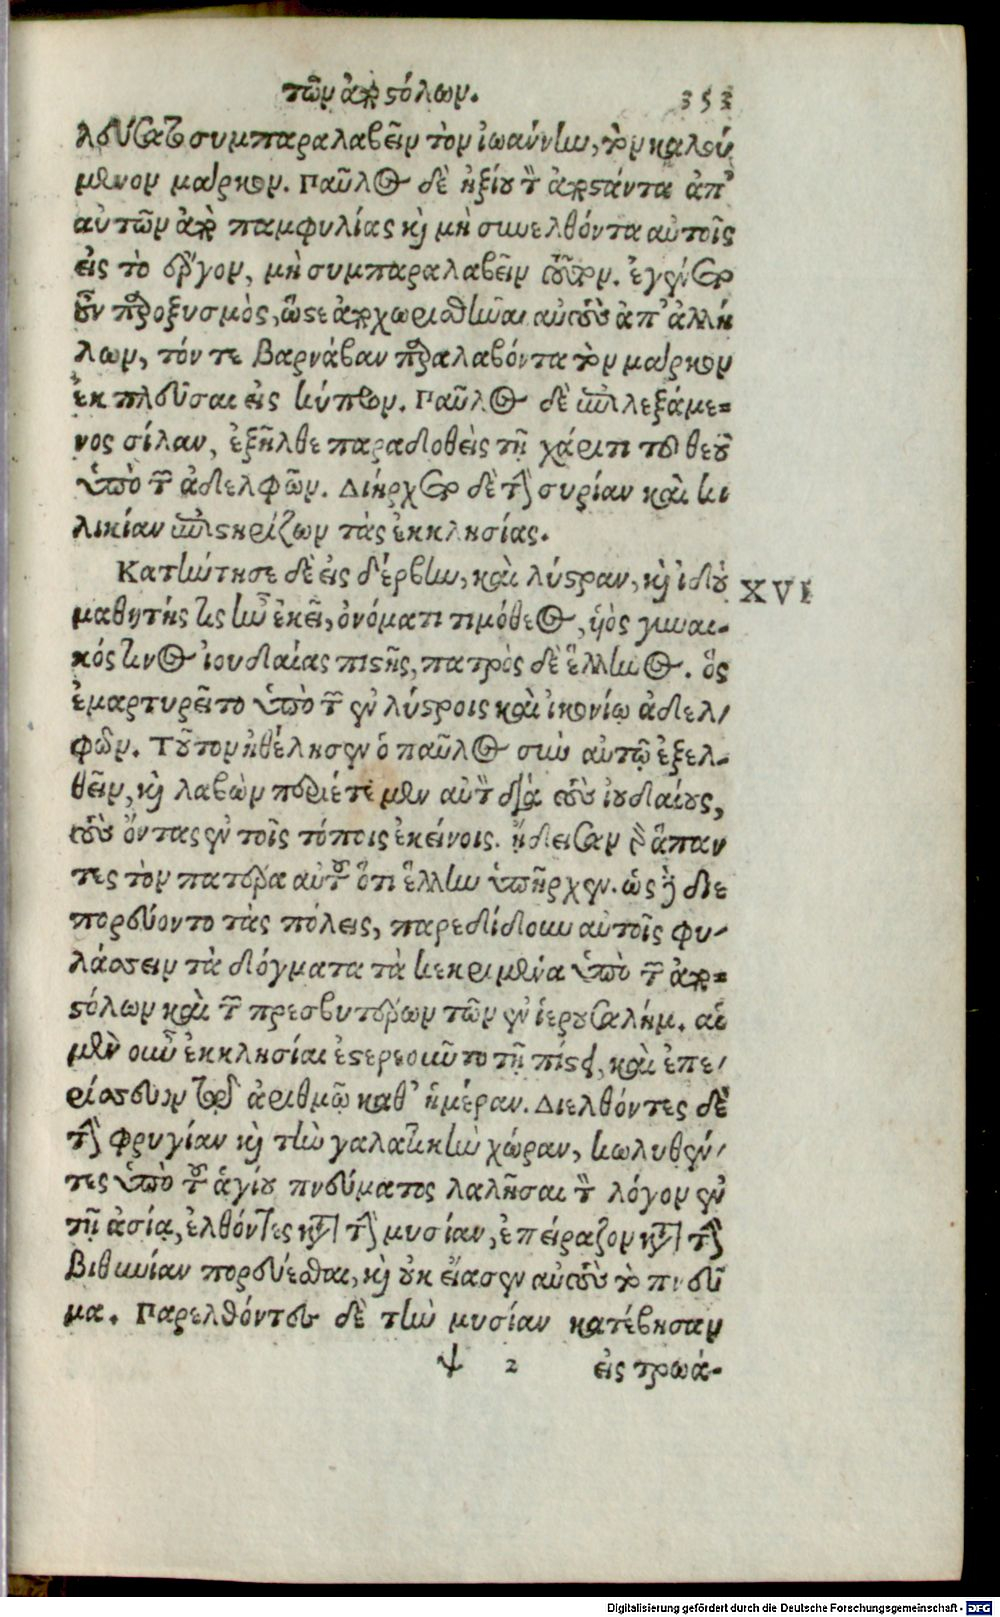 τῶν ἀποστόλων. 353
λεύσατο συμπαραλαβεῖν τὸν ἰωάννην, τὸν καλού
μενον μάρκον. Παῦλος δὲ ἠξίου τὸν ἀποστάντα ἀπ’
αὐτῶν ἀπὸ παμφυλίας καὶ μὴ συνελθόντα αὐτοῖς
εἰς τὸ ἔργον, μὴ συμπαραλαβεῖν τοῦτον. ἐγένετο
οὖν παροξυσμὸς, ὥστε ἀποχωρισθῆναι αὐτοὺς ἀπ’ ἀλλή
λων, τόν τε Βαρνάβαν παραλαβόντα τὸν μάρκον
ἐκπλεῦσαι εἰς κύπρον. Παῦλος δὲ ἐπιλεξάμε-
νος σίλαν, ἐξῆλθε παραδοθεὶς τῇ χάριτι τοῦ θεοῦ
ὑπὸ τῶν ἀδελφῶν. Διήρχετο δὲ τὴν συρίαν καὶ κι
λικίαν ἐπιστηρίζων τὰς ἐκκλησίας.
Κατήντησε δὲ εἰς δέρβην, καὶ λύστραν, καὶ ἰδοὺ XVI
μαθητής τις ἦν ἐκεῖ, ὀνόματι τιμόθεος, ὑιὸς γυναι-
κός τινος ἰουδαίας πιστῆς, πατρὸς δὲ ἕλληνος. ὃς
ἐμαρτυρεῖτο ὑπὸ τῶν ἐν λύστροις καὶ ἰκονίῳ ἀδελ-
φῶν. Τοῦτον ἠθέλησεν ὁ παῦλος σὺν αὐτῷ ἐξελ-
θεῖν, καὶ λαβὼν περιέτεμεν αὐτὸν διὰ τοὺς ἰουδαίους,
τοὺς ὄντας ἐν τοῖς τόποις ἐκείνοις. ᾔδεισαν γὰρ ἅπαν
τες τὸν πατέρα αὐτοῦ ὅτι ἕλλην ὑπῆρχεν. ὡς δὲ διε
πορεύοντο τὰς πόλεις, παρεδίδουν αὐτοῖς φυ-
λάσσειν τὰ δόγματα τὰ κεκριμένα ὑπὸ τῶν ἀπο-
στόλων καὶ τῶν πρεσβυτέρων τῶν ἐν ἱερουσαλήμ. αἱ
μὲν οὖν ἐκκλησίαι ἐστερεοῦντο τῇ πίστει, καὶ ἐπε-
ρίσσευον τῷ ἀριθμῷ καθ’ ἡμέραν. Διελθόντες δὲ
τὴν φρυγίαν καὶ τὴν γαλατικὴν χώραν, κωλυθέν-
τες ὑπὸ τοῦ ἁγίου πνεύματος λαλῆσαι τὸν λόγον ἐν
τῇ ἀσίᾳ, ἐλθόντες κατὰ τὴν μυσίαν, ἐπείραζον κατὰ τὴν
Βιθυνίαν πορεύεσθαι, καὶ οὐκ εἴασεν αὐτοὺς τὸ πνεῦ
μα. Παρελθόντες δὲ τὴν μυσίαν κατέβησαν
ψ 2 εἰς τρωά-
Digitalisierung gefördert durch die Deutsche Forschungsgemeinschaft - DFG